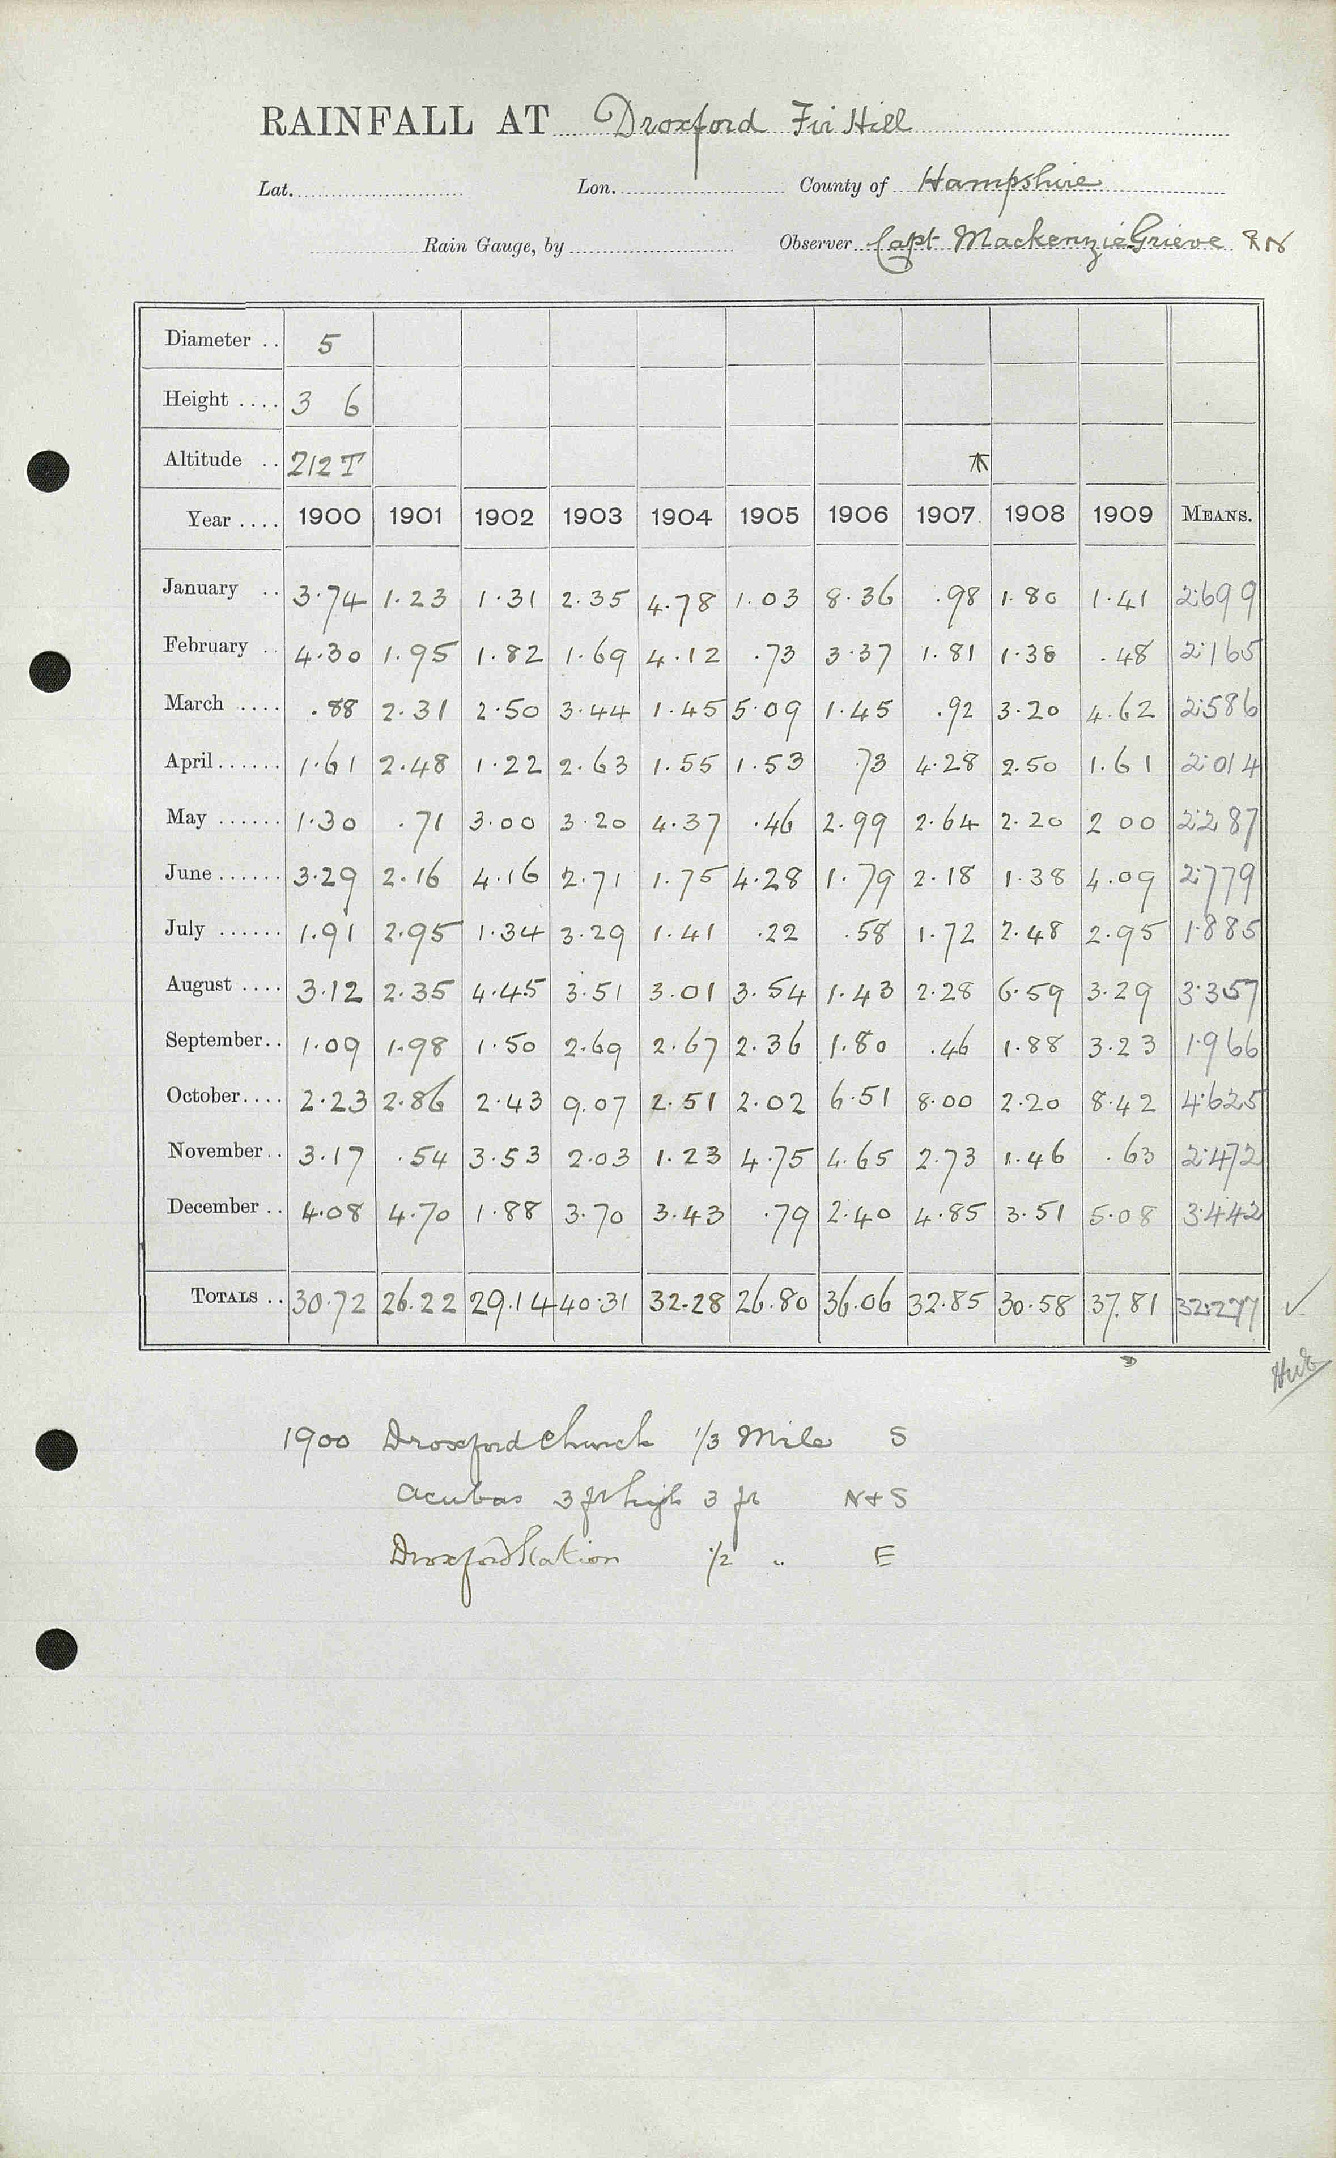 RAINFALL AT Droxford Fir Hill
Lat. Lon. County of Hampshire
Rain Gauge, by Observer Capt Mackenzie Grieve RN
Diameter .. 5
Height .... 3 6
Altitude .. 212 T
Year .... 1900 1901 1902 1903 1904 1905 1906 1907 1908 1909 MEANS.
January .. 3.74 1.23 1.31 2.35 4.78 1.03 8.36 .98 1.80 1.41 2.699
February .. 4.30 1.95 1.82 1.69 4.12 .73 3.37 1.81 1.38 .48 2.165
March .... .88 2.31 2.50 3.44 1.45 5.09 1.45 .92 3.20 4.62 2.586
April ...... 1.61 2.48 1.22 2.63 1.55 1.53 .73 4.28 2.50 1.61 2.014
May ...... 1.30 .71 3.00 3.20 4.37 .46 2.99 2.64 2.20 2 00 2.287
June ...... 3.29 2.16 4.16 2.71 1.75 4.28 1.79 2.18 1.38 4.09 2.779
July ...... 1.91 2.95 1.34 3.29 1.41 .22 .58 1.72 2.48 2.95 1.885
August .... 3.12 2.35 4.45 3.51 3.01 3.54 1.43 2.28 6.59 3.29 3.357
September .. 1.09 1.98 1.50 2.69 2.67 2.36 1.80 .46 1.88 3.23 1.966
October .... 2.23 2.86 2.43 9.07 2.51 2.02 6.51 8.00 2.20 8.42 4.625
November .. 3.17 .54 3.53 2.03 1.23 4.75 4.65 2.73 1.46 .63 2.472
December .. 4.08 4.70 1.88 3.70 3.43 .79 2.40 4.85 3.51 5.08 3.442
TOTALS .. 30.72 26.22 29.14 40.31 32.28 26.80 36.06 32.85 30.58 37.81 32.277
1900 Droxford Church 1/3 Mile S
Acubas 3 ft high 3 ft N + S
Droxford Station 1/2 " E